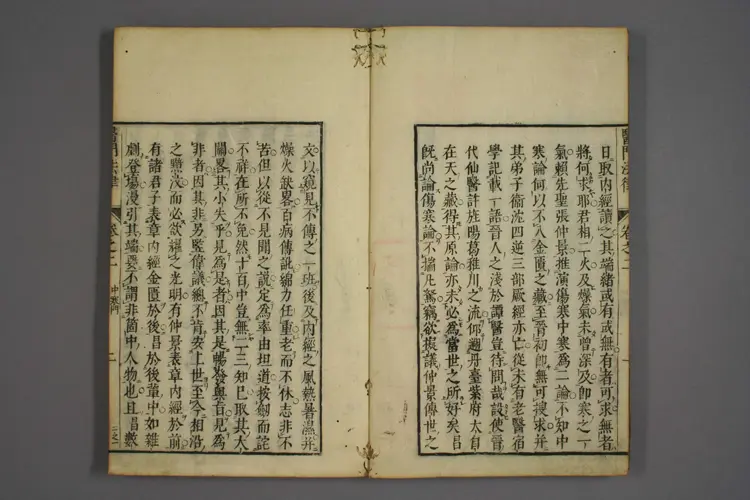 日取內經讀之其端緒或有或無有者可求無者
將何求耶君相二火及燥氣未曾深及卽寒之一
氣賴先聖張仲景推演傷寒中寒爲二論不知中
寒論何以不入金匱之藏至晉初卽無可搜求并
其弟子衞沈四逆三部厥經亦亡從未有老醫宿
學記載一語晉人之淺於譚醫豈待問哉設使晉
代仙醫許旌陽葛稚川之流仰遡丹臺紫府太白
在天之藏得其原論亦未必爲當世之所好矣昌
旣尚論傷寒論不揣凡駑竊欲擬議仲景傳世之
文以窺見不傳之一班後及內經之風熱暑濕并
燥火缺畧百病傳訛綿力任重老而不休志非不
苦但以從不見聞之說定爲率由坦道按劍而詫
不祥在所不免然十百中豈無一二知已取其大
關畧其小失乎見爲是者因其是暢發奧旨見爲
非者因其非另竪偉議總不肯安上世至今相沿
之黯汶而必欲耀之光明有仲景表章內經於前
有諸君子表章內經金匱於後昌於後輩中如雜
劇登場漫引其端要不謂非箇中人物也且昌數
醫門法律
卷之二
醫門法律
卷之二
中寒門
一